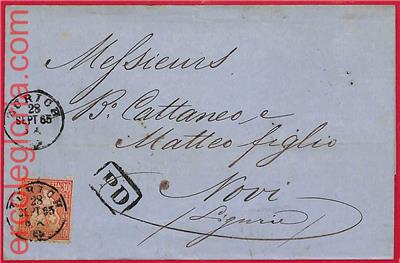 Messieurs
B. Cattaneo e
Matteo figlio
Novi
(Ligurie)
ZURICH
28
SEPT 65
PD
30
ZURICH
28
SEPT 65
ercolegloria.com